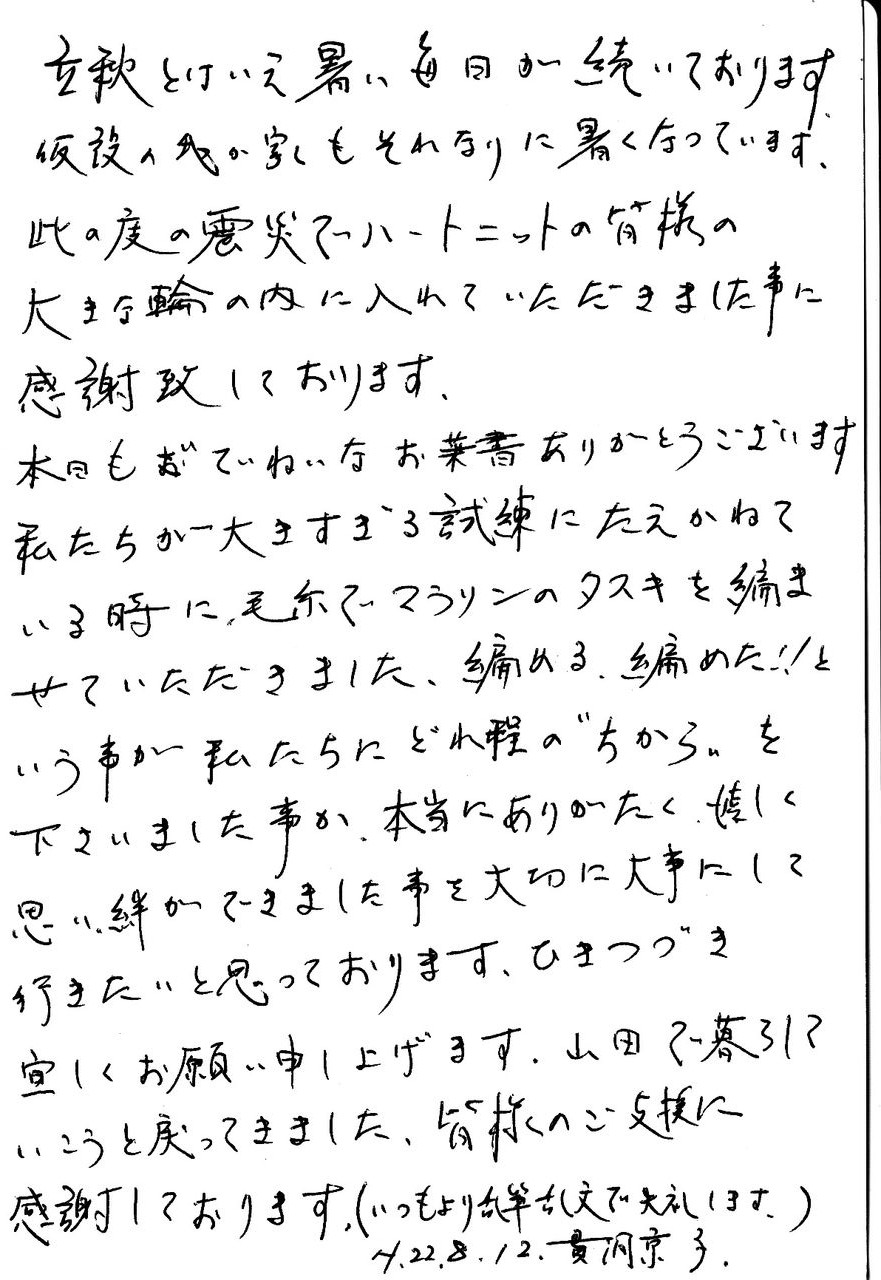 立秋とはいえ暑い毎日が続いております。
仮設の我が家もそれなりに暑くなっています。
此の度の震災でハートニットの皆様の
大きな輪の内に入れていただきました事に
感謝致しております。
本日も ていねいなお葉書ありがとうございます
私たちが大きすぎる試練にたえかねて
いる時に、毛糸でマラソンのタスキを編ま
せていただきました、編める、編めた!!と
いう事が私たちにどれ程の"ちから"を
下さいました事か、本当にありがたく、嬉しく
思い、絆ができました事を大切に大事にして
行きたいと思っております、ひきつづき
宜しくお願い申し上げます。山田で暮らして
いこうと戻ってきました、皆様のご支援に
感謝しております。(いつもより乱筆乱文で失礼します。)
22.8.12. 貫洞京子.